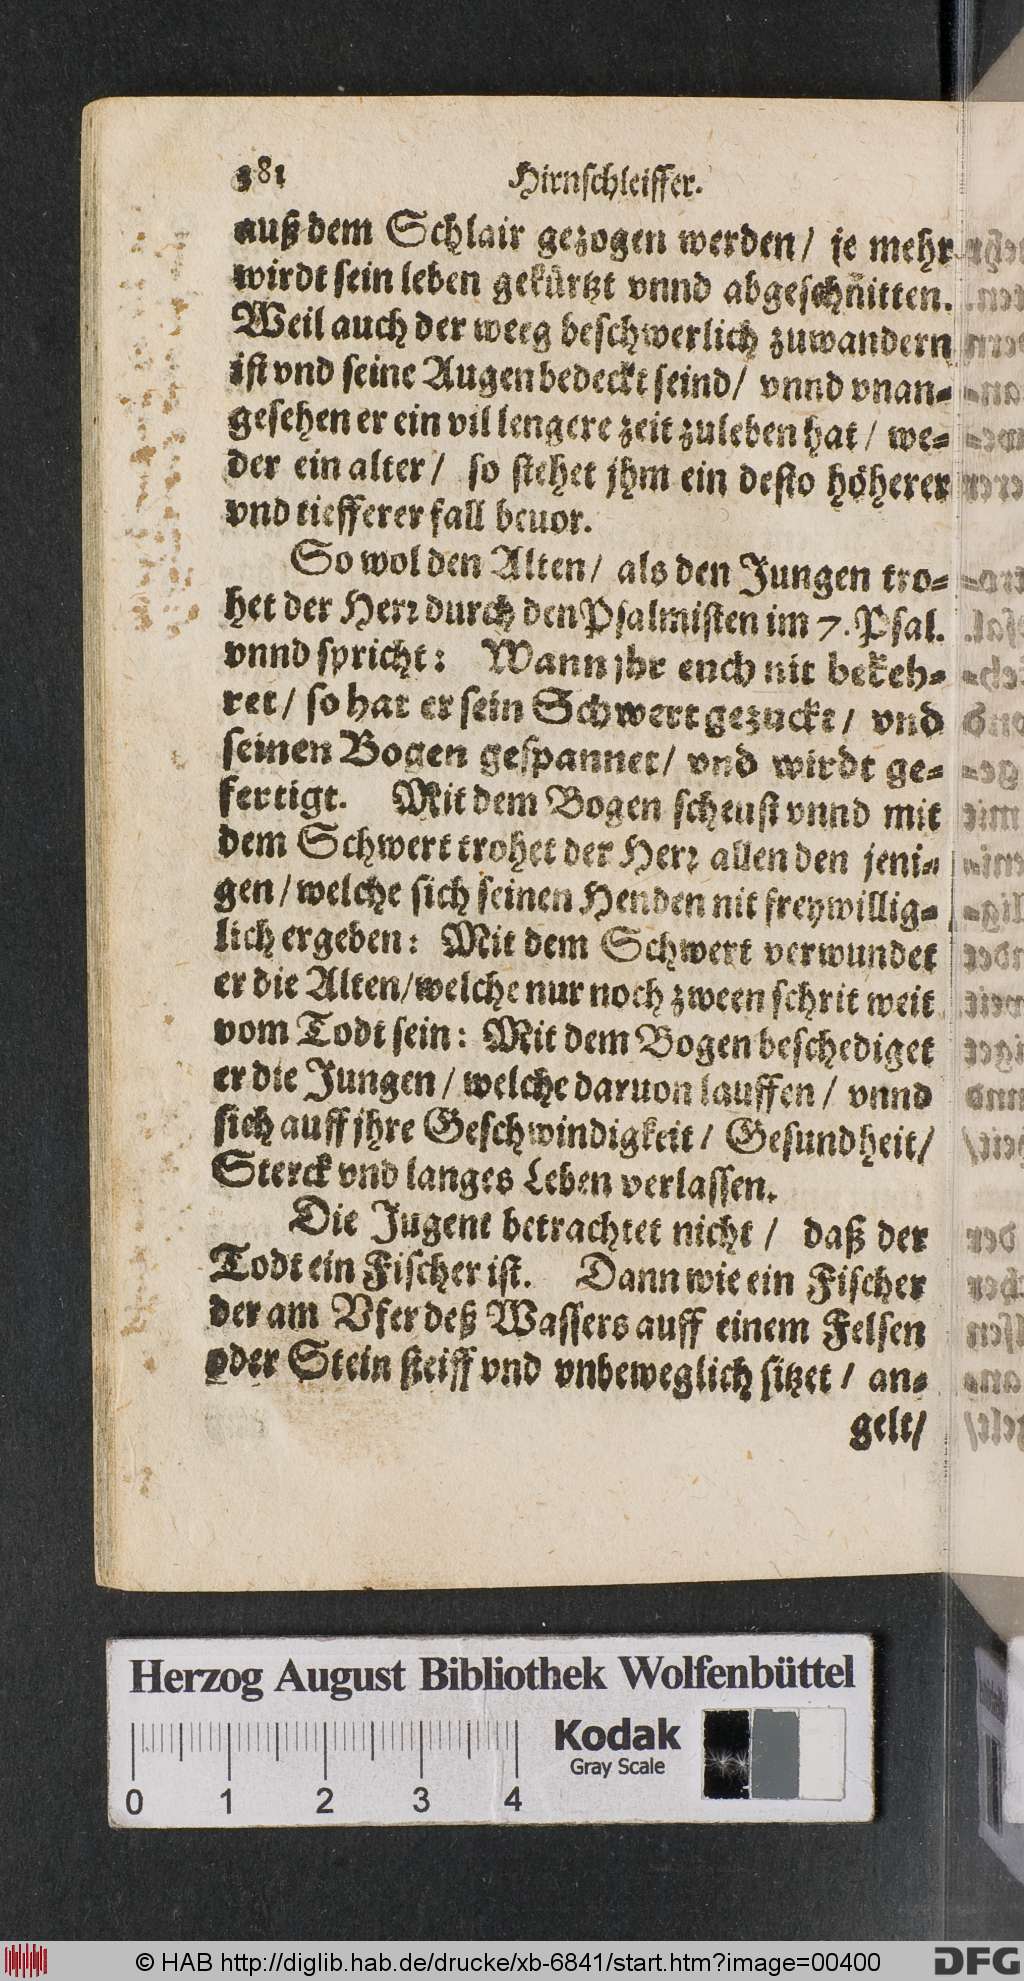 381 Hirnschleiffer.
auß dem Schlair gezogen werden/ je mehr
wirdt sein leben gekürtzt vnnd abgeschnitten.
Weil auch der weeg beschwerlich zuwandern
ist vnd seine Augen bedeckt seind/ vnnd vnan-
gesehen er ein vil lengere zeit zuleben hat/ we-
der ein alter/ so stehet jhm ein desto höherer
vnd tiefferer fall beuor.
So wol den Alten/ als den Jungen tro-
het der Herr durch den Psalmisten im 7. Psal.
vnnd spricht: Wann jhr euch nit bekeh-
ret/ so hat er sein Schwert gezuckt/ vnd
seinen Bogen gespannet/ vnd wirdt ge-
fertigt. Mit dem Bogen scheust vnnd mit
dem Schwert trohet der Herr allen den jeni-
gen/ welche sich seinen Henden nit freywillig-
lich ergeben: Mit dem Schwert verwundet
er die Alten/welche nur noch zween schrit weit
vom Todt sein: Mit dem Bogen beschediget
er die Jungen/ welche daruon lauffen/ vnnd
sich auff jhre Geschwindigkeit/ Gesundheit/
Sterck vnd langes Leben verlassen.
Die Jugent betrachtet nicht/ daß der
Todt ein Fischer ist. Dann wie ein Fischer
der am Vfer deß Wassers auff einem Felsen
oder Stein steiff vnd vnbeweglich sitzet/ an-
gelt/
Herzog August Bibliothek Wolfenbüttel
Kodak
Gray Scale
0 1 2 3 4
© HAB http://diglib.hab.de/drucke/xb-6841/start.htm?image=00400
DFG